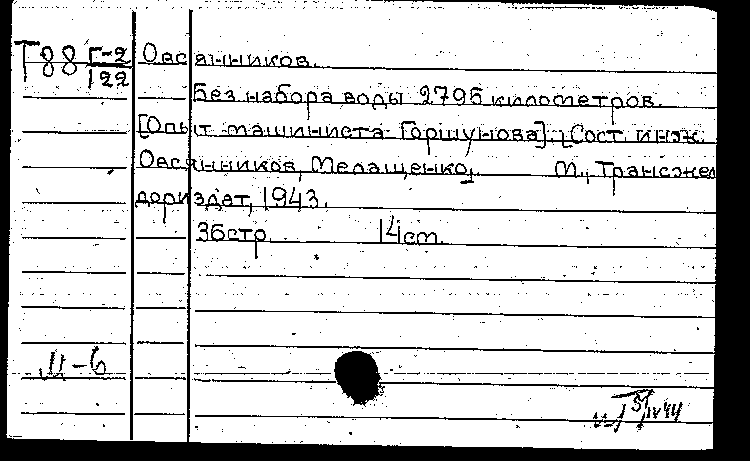 Т88 Г-2 Овсянников.
122
Без набора воды 2795 километров.
[Опыт машиниста Горшунова]. [Сост. инж.
Овсянников, Мелащенко]. М., Трансжел
дориздат, 1943.
36стр. 14см.
М-6